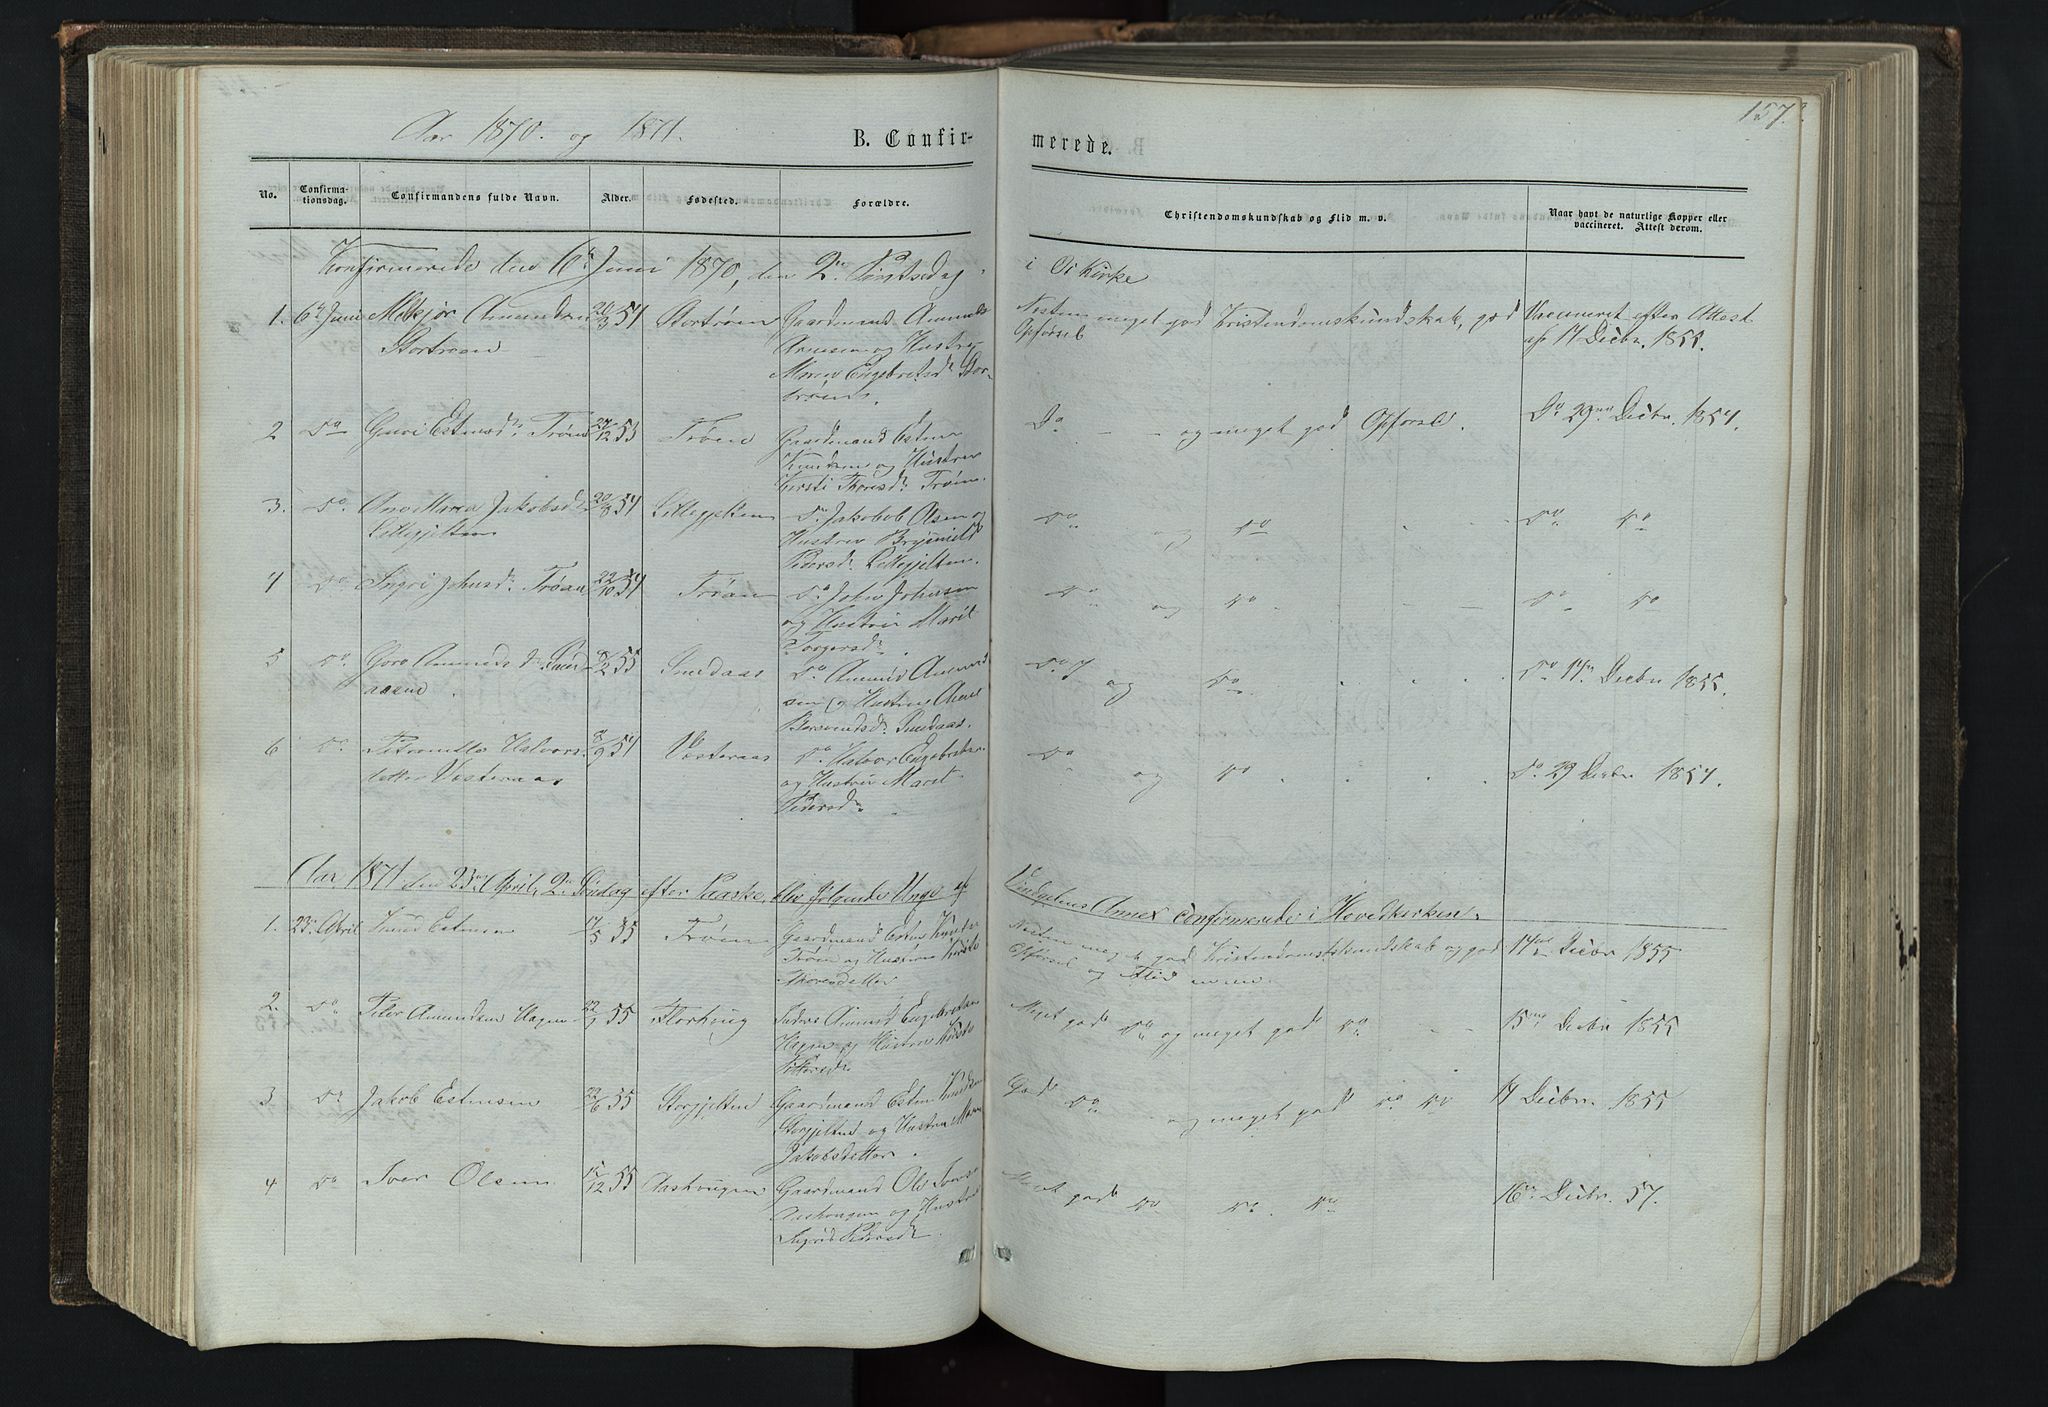 157.
Aar 1870. og 1871.
B. Confirmerede.
No.
Confirmationsdag.
Confirmandens fulde Navn.
Alder.
Fødested.
Forældre.
Christendomskundskab og Flid m. v.
Naar havt de naturlige Kopper eller vaccineret. Attest derom.
Konfirmerede den 6te Juni 1870, den 2den Pintsedag i Os Kirke
1. 6te Juni Amundsen 54 Stortrøen Gaardmand Amund Nesten meget god Kristendomskundskab, god Vaccineret efter Attest
Stortrøen Arnesen og Hustru Opførsel af 17 Decbr. 1855.
Maren Engebretsd. Stor-
trøen.
2 Do Guri Estensd. Trøen 27/12 53 Trøen Gaardmand Esten Do og meget god Opførsel Do 29de Decbr. 1854.
Knudsen og Hustru
Kirsti Thoresd. Trøen.
3. Do. Ane Maria Jakobsd. 20/8 54 Lillegjelten Do. Jakob Olsen og Do og Do Do Do
Lillegjelten Hustru
Pedersd. Lillegjelten.
4 Do Ingri Johnsd. Trøen 22/10 54 Trøen Do John Johnsen Do og Do Do Do
og Hustru Marit
Torgersd.
5 Do Goro Amundsd. 55 Smedaas Do Amund Amund- Do og Do Do 14de Decbr 1855.
sen og Hustru Ane
Smedaas.
6 Do Halvors- 8/9 54 Vesteraas Do. Halvor Engebretsen Do og Do Do 29 Decbr 1854.
datter Vesteraas og Hustru Marit
Pedersd.
Aar 1871 den 23de April, 2den Søndag efter Paaske, blev følgende Unge af Annex Confirmerede i Hovedkirken.
1. 23de April Knud Estensen 17/5 55 Trøen Gaardmand Esten Knudsen Nesten meget god Kristendomskundskab og god 14de Decbr 1855
Trøen og Hustru Kirsti Opførsel og Flid
Thoresdatter
2. Do Peter Amundsen Hagen 55 Amund Engebretsen Meget god Do og meget god Do 15de Decbr 1855
Hagen og Hustru
3 Do Jakob Estensen 22/6 55 Storgjelten Gaardmand Esten Knudsen God Do og meget god Do Do 17 Decbr. 1855
Storgjelten og Hustru
Jakobsdatter.
4 Do Iver Olsen 15/12 55 Aashougen Gaardmand Ole god Do Do. Do 16de Decbr. 57.
Aashougen og Hustru
Ingrid Pedersd.